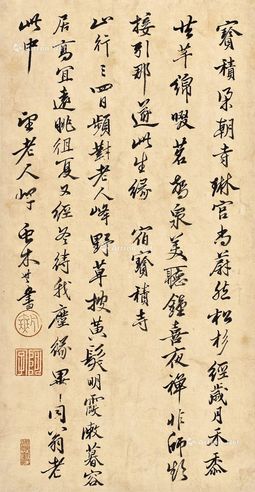 寶積梁朝寺琳宮尚蔚然松杉經歲月禾黍
共芊綿啜茗泉美聽鐘喜夜禪非師頻
接引那遂此生緣 宿寶積寺
山行三四日頻對老人峰野草披黃髮明霞漱暮容
居高宜遠眺徂夏又經冬待我塵緣畢同翁老
此中 望老人峰 書